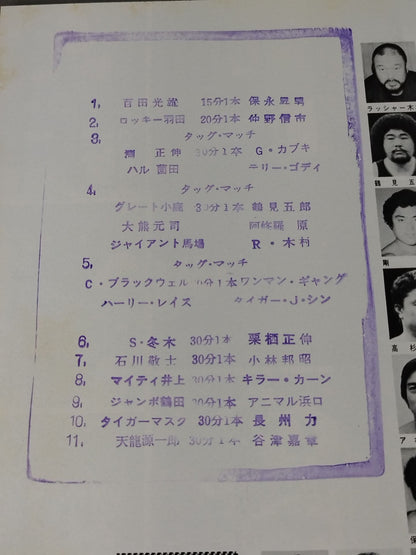 1, 百田光雄 15分1本 保永昇男
2, ロッキー羽田 20分1本 仲野信市
3, タッグ・マッチ
渕 正伸 30分1本 G・カブキ
ハル 薗田 テリー・ゴディ
4, タッグ・マッチ
グレート小鹿 30分1本 鶴見五郎
大熊元司 阿修羅 原
ジャイアント馬場 R・木村
5, タッグ・マッチ
C・ブラックウェル 30分1本 ワンマン・ギャング
ハーリー・レイス タイガー・J・シン
6, S・冬木 30分1本 栗栖正伸
7, 石川敬士 30分1本 小林邦昭
8, マイティ井上 30分1本 キラー・カーン
9, ジャンボ鶴田 30分1本 アニマル浜口
10, タイガーマスク 30分1本 長州 力
11, 天龍源一郎 30分1本 谷津嘉章
ラッシャー木
鶴見五
剛
高杉
ア
保